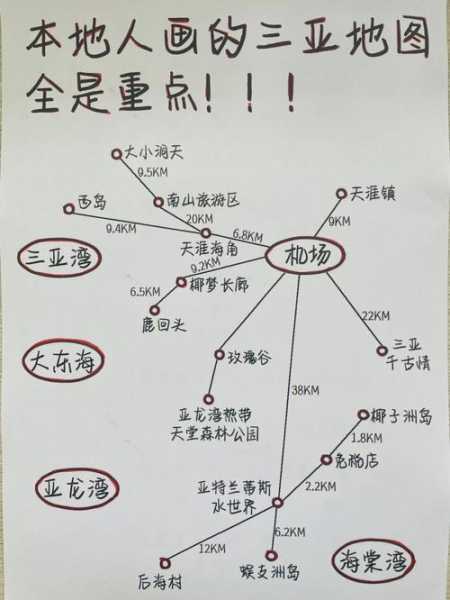 本地人画的三亚地图
全是重点！！！
大小洞天
9.5KM
西岛
南山旅游区
天涯镇
20KM
9.4KM
9KM
天涯海角
6.8KM
机场
三亚湾
9.2KM
椰梦长廊
6.5KM
鹿回头
22KM
三亚
千古情
大东海
玫瑰谷
38KM
亚龙湾热带
天堂森林公园
椰子洲岛
1.8KM
免税店
亚龙湾
亚特兰蒂斯
水世界
2.2KM
6.2KM
12KM
后海村
蜈支洲岛
海棠湾